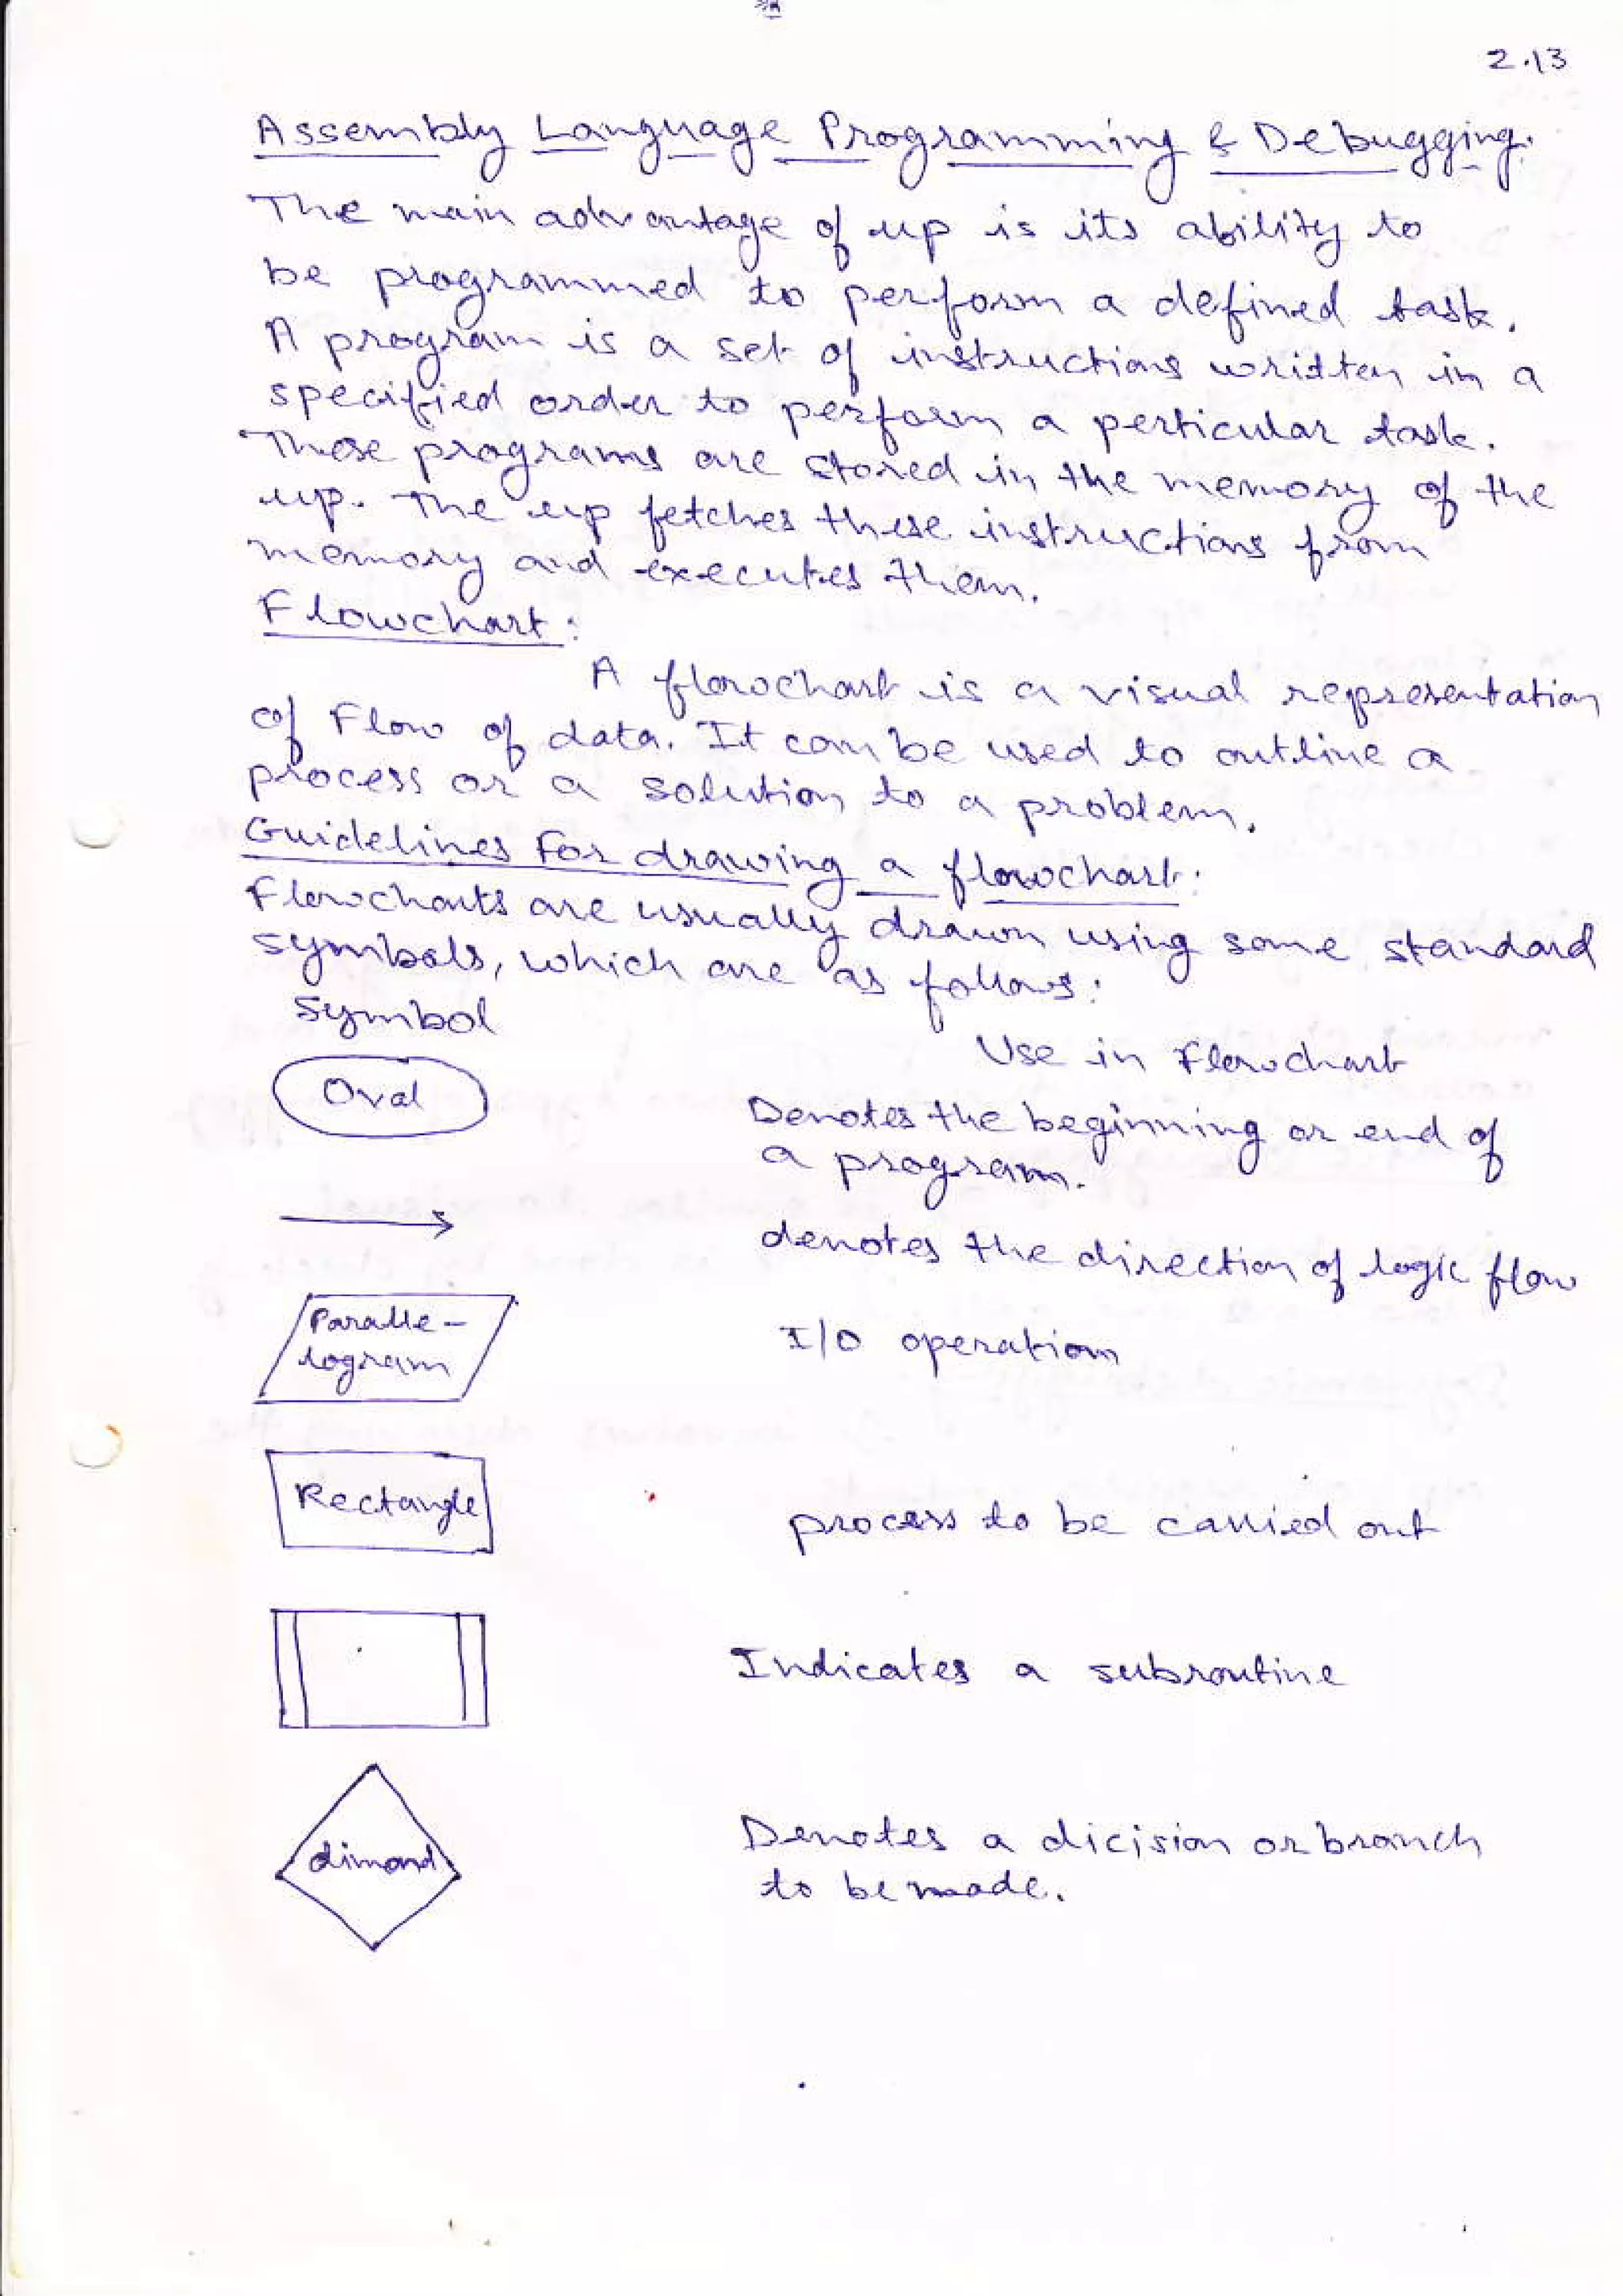 2.13
Assembly Language Programming & Debugging.
The main advantage of up is its ability to
be programmed to perform a defined task.
A program is a set of instructions written in a
specified order to perform a perticular task.
These programs are stored in the memory of the
up. The up fetches these instructions from
memory and executes them.
Flowchart:
A flowchart is a visual representation
of Flow of data. It can be used to outline a
process or a solution to a problem.
Guidelines For drawing a flowchart:
Flowcharts are usually drawn using some standard
symbols, which are as follows:
Symbol
Use in Flowchart
Oval
Denotes the beginning or end of
a program.
denotes the direction of logic flow
Paralle-
logram
I/O operation
Rectangle
process to be carried out
Indicates a subroutine
dimond
Denotes a dicision or branch
to be made.